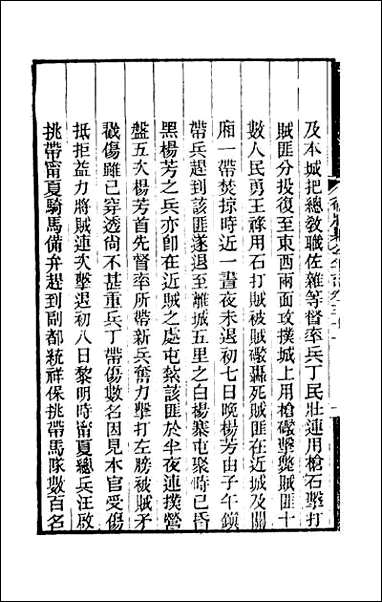 及本城把總教職佐雜等督率兵丁民壯連用槍石擊打
賊匪分投復至東西兩面攻撲城上用槍礮擊斃賊匪十
數人民勇王祿用石打賊被賊礮轟死賊匪在近城及關
廂一帶焚掠時近一晝夜未退初七日晚楊芳由子午鎮
帶兵趕到該匪遂退至離城五里之白楊寨屯聚時已昏
黑楊芳之兵亦卽在近賊之處屯紮該匪於半夜連撲營
盤五次楊芳首先督率所帶新兵奮力擊打左膀被賊矛
戳傷雖已穿透尙不甚重兵丁帶傷數名因見本官受傷
抵拒益力將賊連次擊退初八日黎明時甯夏總兵汪啟
挑帶甯夏騎馬備弁趕到副都統祥保挑帶馬隊數百名